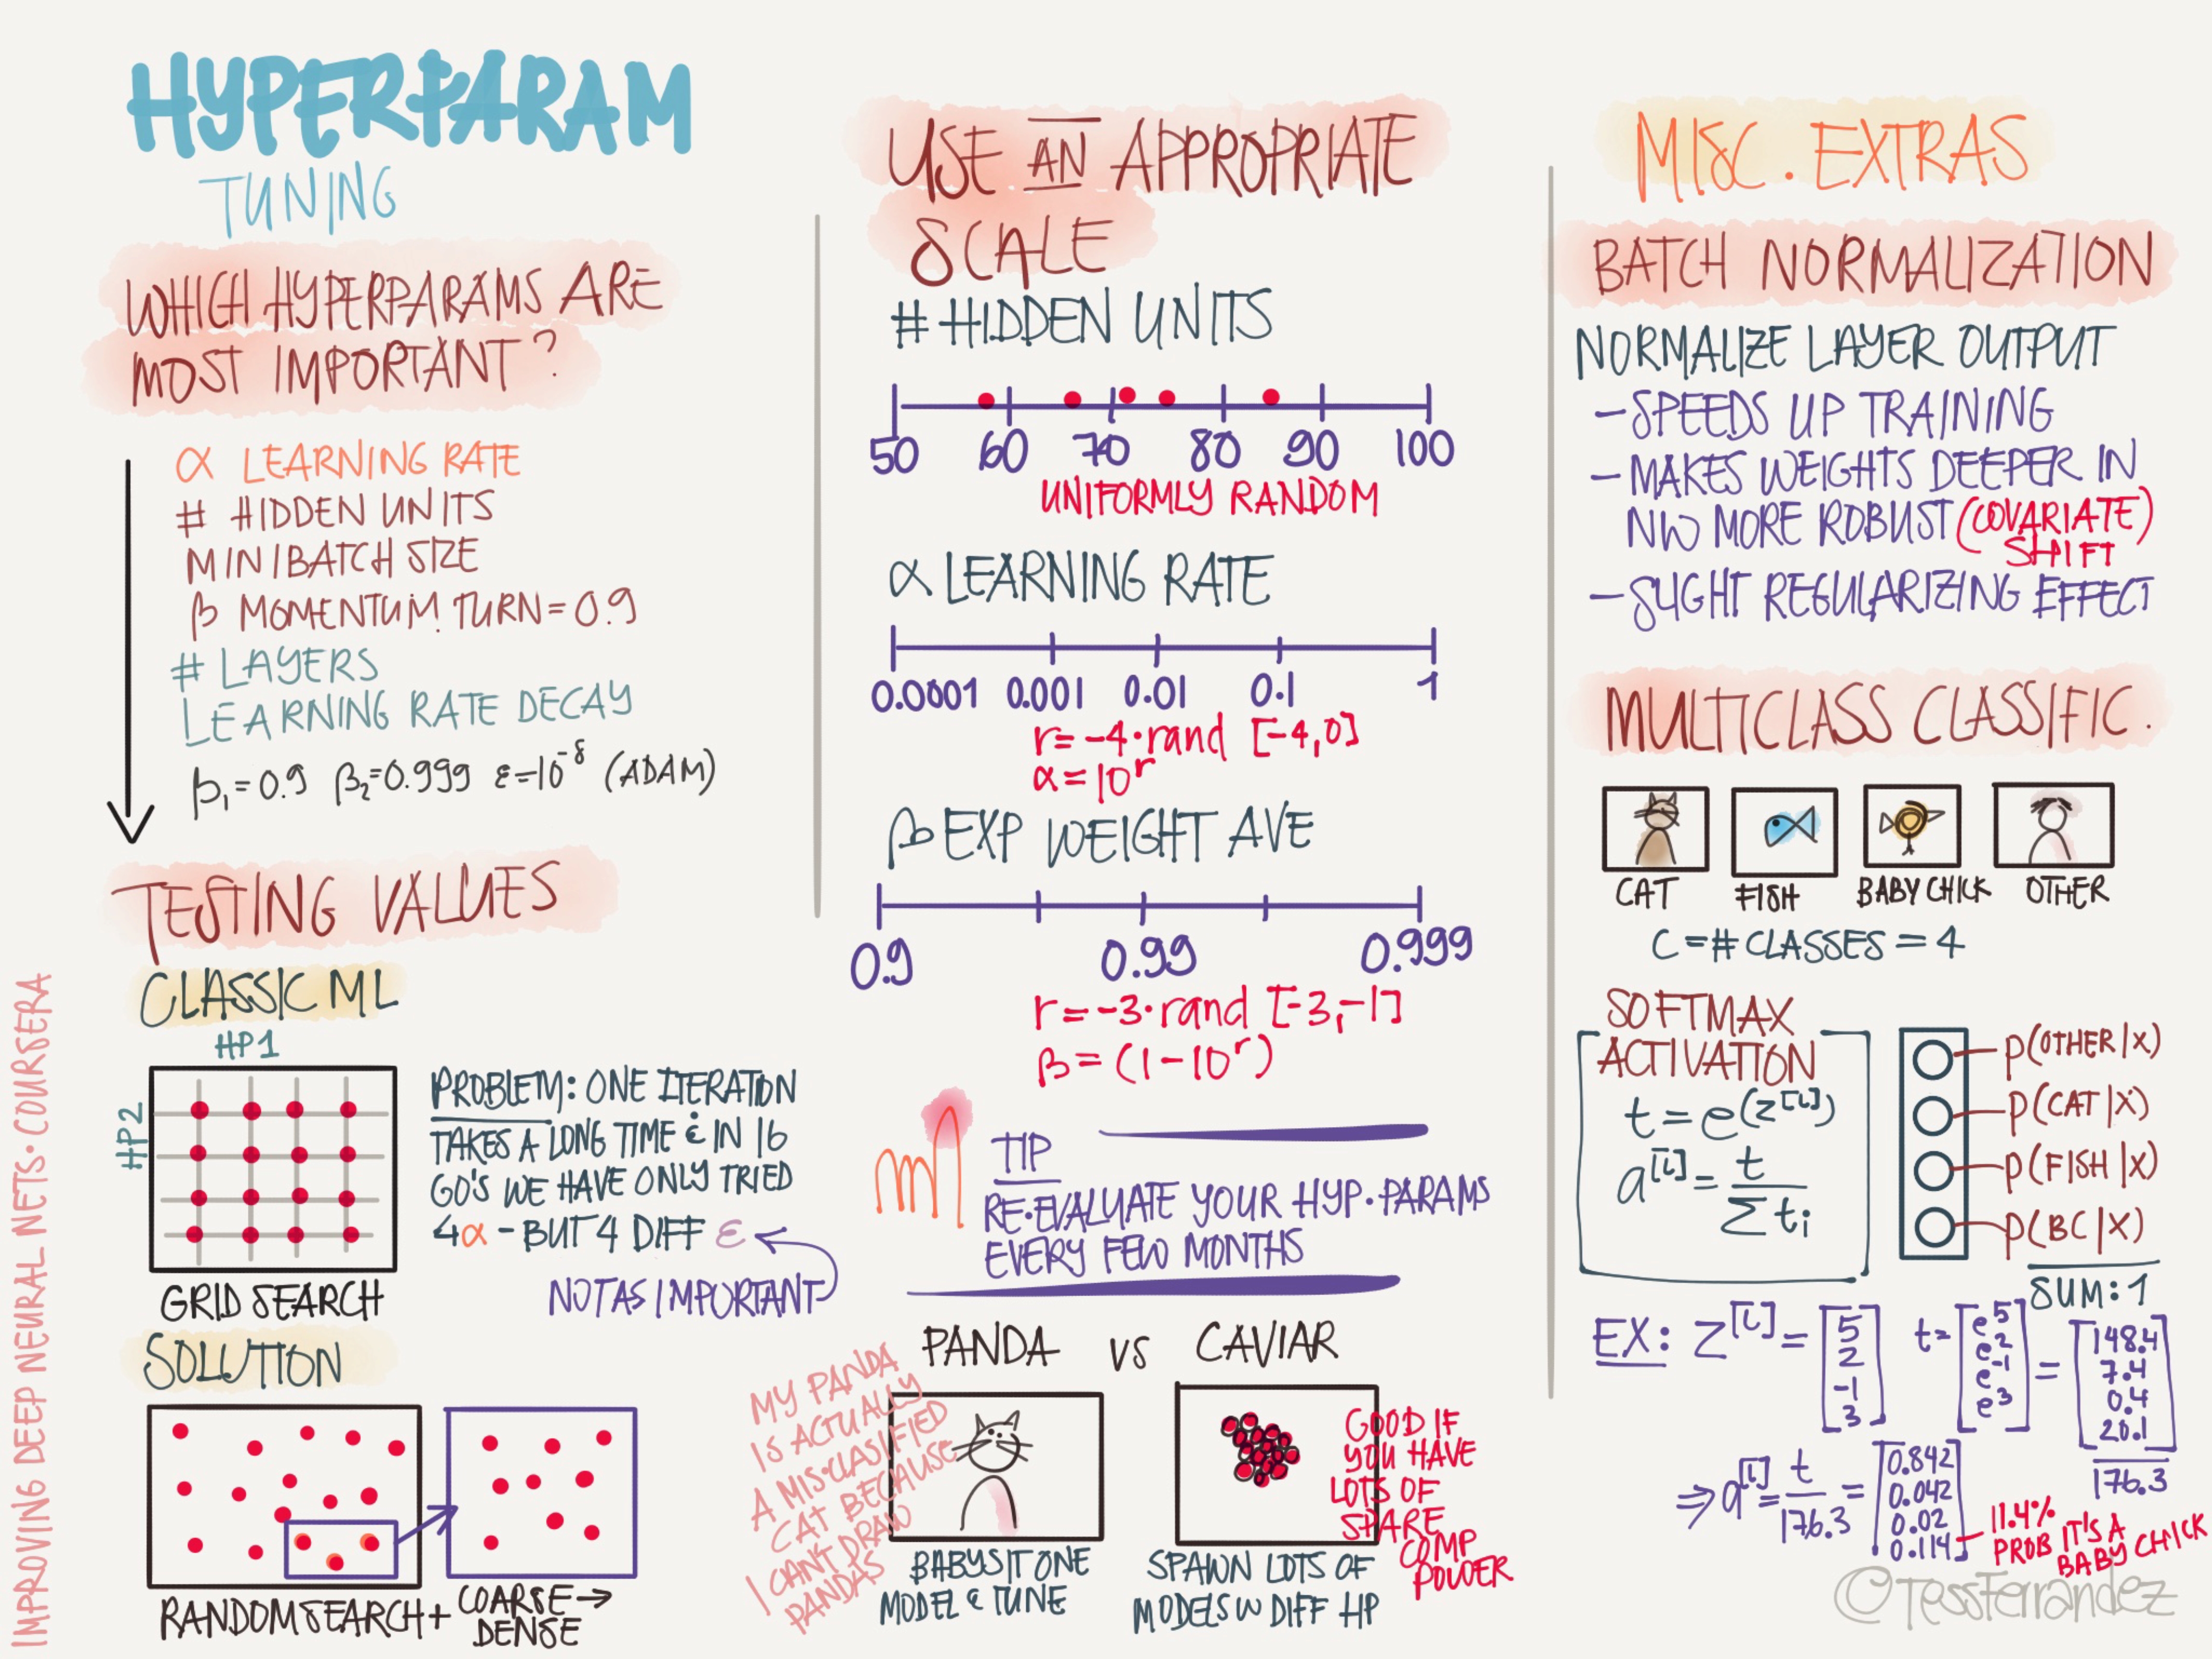 HYPERPARAM
TUNING
WHICH HYPERPARAMS ARE
MOST IMPORTANT?
α LEARNING RATE
# HIDDEN UNITS
MINIBATCH SIZE
β MOMENTUM TURN = 0.9
# LAYERS
LEARNING RATE DECAY
β₁ = 0.9 β₂ = 0.999 ε = 10⁻⁸ (ADAM)
TESTING VALUES
CLASSIC ML
HP1
HP2
PROBLEM: ONE ITERATION
TAKES A LONG TIME & IN 16
GO'S WE HAVE ONLY TRIED
4α - BUT 4 DIFF ε
NOT AS IMPORTANT
GRID SEARCH
SOLUTION
RANDOM SEARCH + COARSE →
DENSE
IMPROVING DEEP NEURAL NETS · COURSERA
USE AN APPROPRIATE
SCALE
# HIDDEN UNITS
50 60 70 80 90 100
UNIFORMLY RANDOM
α LEARNING RATE
0.0001 0.001 0.01 0.1 1
r = -4 · rand [-4,0]
α = 10^r
β EXP WEIGHT AVE
0.9 0.99 0.999
r = -3 · rand [-3,-1]
β = (1 - 10^r)
TIP
RE-EVALUATE YOUR HYP. PARAMS
EVERY FEW MONTHS
PANDA VS CAVIAR
MY PANDA
IS ACTUALLY
A MIS-CLASIFIED
CAT BECAUSE
I CAN'T DRAW
PANDAS
BABYSIT ONE
MODEL & TUNE
GOOD IF
YOU HAVE
LOTS OF
SPARE
COMP
POWER
SPAWN LOTS OF
MODELS W DIFF HP
MISC. EXTRAS
BATCH NORMALIZATION
NORMALIZE LAYER OUTPUT
- SPEEDS UP TRAINING
- MAKES WEIGHTS DEEPER IN
NW MORE ROBUST (COVARIATE)
SHIFT
- SLIGHT REGULARIZING EFFECT
MULTICLASS CLASSIFIC.
CAT FISH BABY CHICK OTHER
C = # CLASSES = 4
SOFTMAX
ACTIVATION
t = e^(z^[L])
a^[L] = t / Σ tᵢ
P(OTHER|X)
P(CAT|X)
P(FISH|X)
P(BC|X)
SUM: 1
EX: Z^[L] = [5 2 -1 3] t = [e^5 e^2 e^-1 e^3] = [148.4 7.4 0.4 20.1]
176.3
⇒ a^[L] = t / 176.3 = [0.842 0.042 0.02 0.114]
11.4%
PROB IT'S A
BABY CHICK
©TessFerrandez